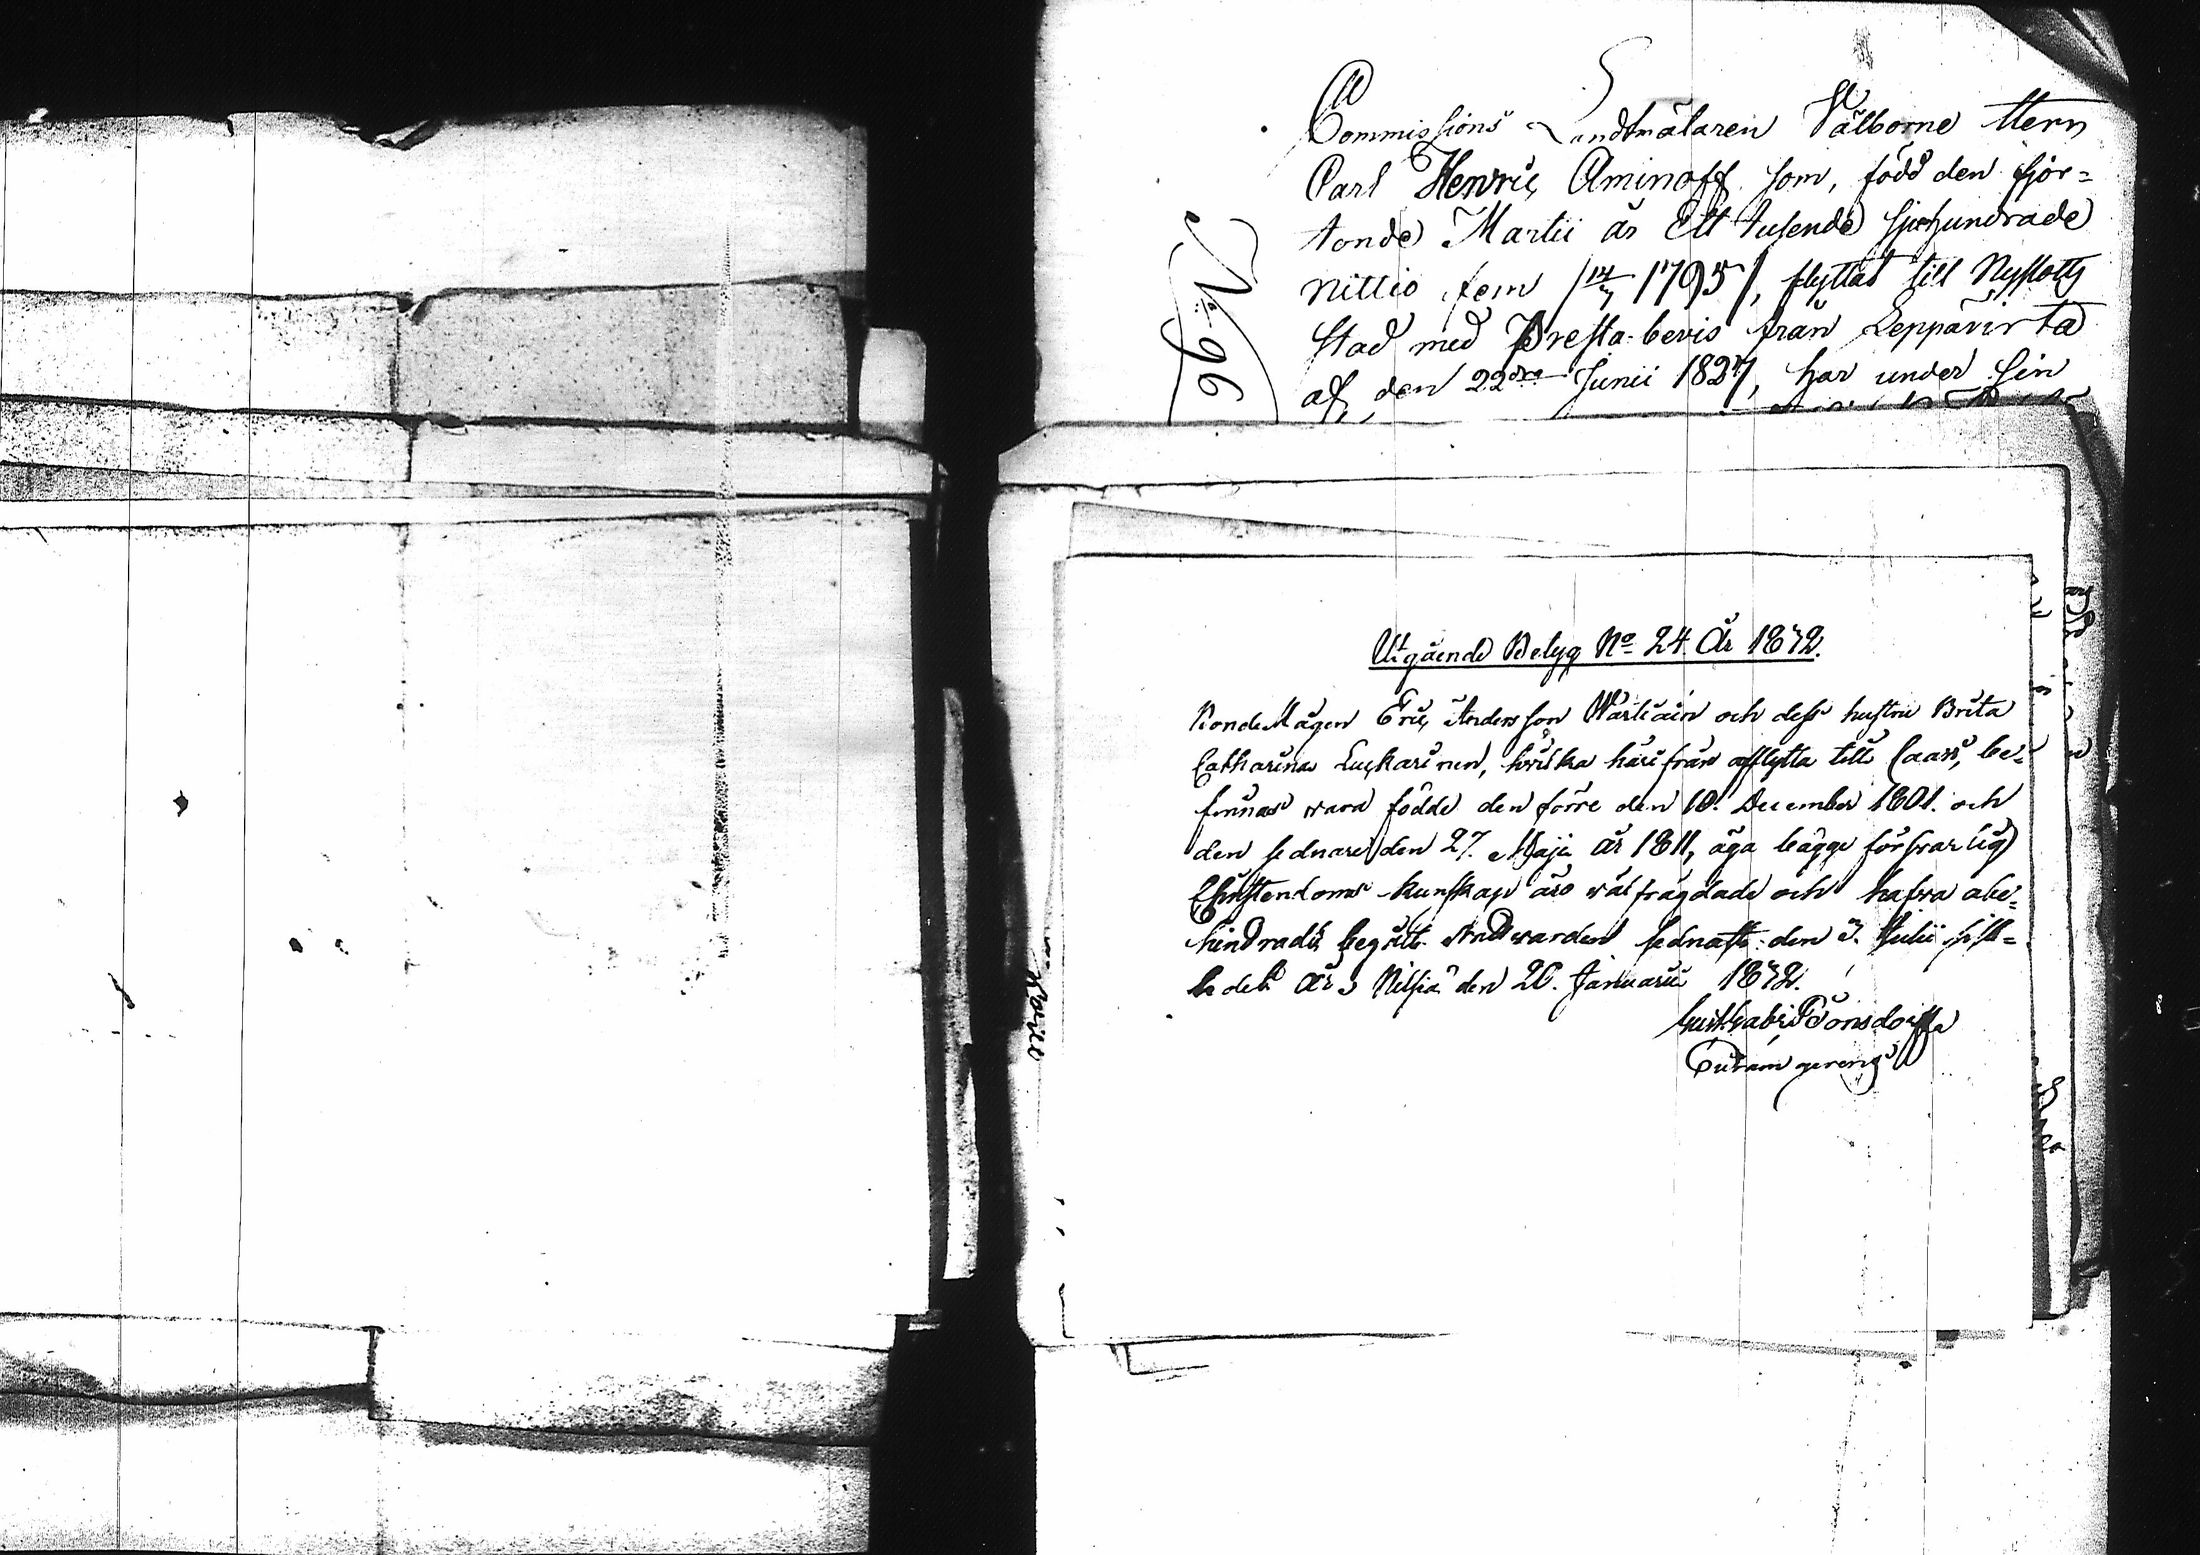 Commissions Landtmätaren Välborne Herrn
Carl Henric Aminoff som, född den fjor=
tonde Martii år Ett tusende sjuhundrade
nittio fem /14/3 1795/, flyttat till Nyslotts
Stad med Presta-bevis från Leppävirta
af den 22dra Junii 1827, har under sin
N:o 96
Utgående Betyg No 24. År 1832.
BondeMågen Eric Andersson Wartiain och dess hustru Brita
Catharina Luckarinen, hvilka härifrån afflytta till Caavi, be=
finnas wara födde den förre den 10. December 1801. och
den sednare den 27. Maji år 1811, äga bägge försvarlig
Christendoms-kunskap äro wälfrägdade och hafwa obe=
hindradt begått Nattwarden sednast den 3. Julii sist=
ledet År. Nilsiä den 20. Januarii 1832.